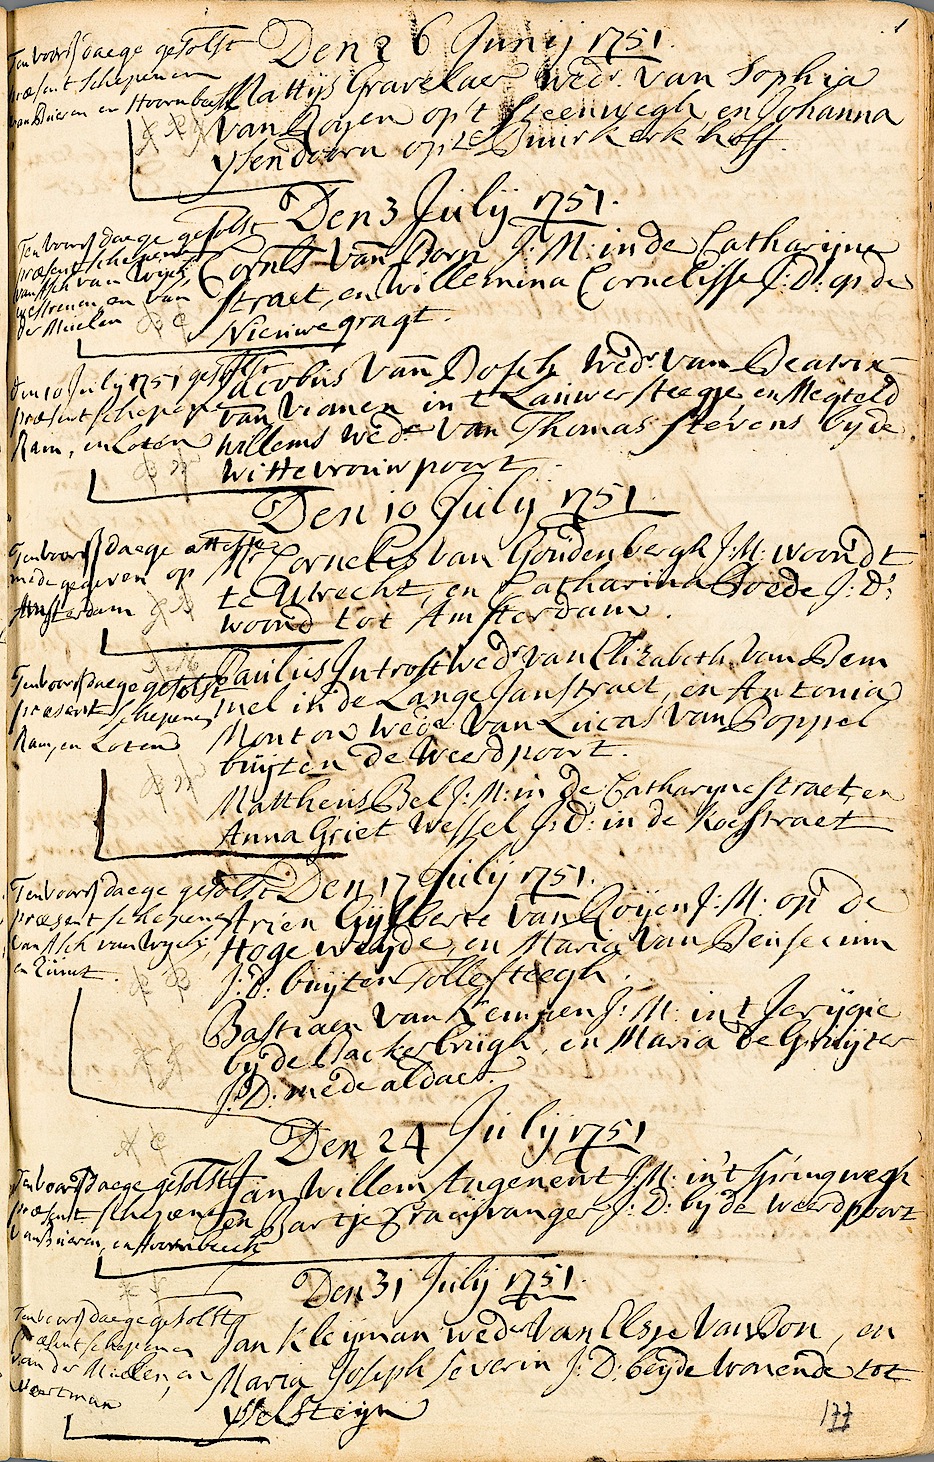 1
Den 26 Junij 1751.
Ten voors. daege getolst
præsent Schepenen
van Bueren en Hoornbeek
Mattijs Gravelaer Wedr. van Sophia
van Royen op't Steenwegh, en Johanna
Ysendoorn op 't Buurkerkhoff.
Den 3 Julij 1751.
Ten voors. daege getolst
præsent Schepenen
van Asch van Wijck
westrenen, en van
der Muelen
Cornls. van Dorn J: M: in de Catharijne
straet, en Willemina Cornelisse J: D: op de
Nieuwegragt.
den 10 Julij 1751 getolst
præsent schepenen
Ram, en Loten
Jacobus van Bosch Wedr. van Beatrix
van Vianen in 't Lauwersteegje en Megteld
Willems Wede. van Thomas Stevens bij de
Wittevrouwpoort.
Den 10 Julij 1751.
Ten voors. daege attestie
mede gegeven op
Amsterdam
Mr. Cornelis van Goudenbergh J: M: woondt
te Utrecht, en Catharina Goede J: D:
woond tot Amsterdam.
Ten voors. daege getolst
præsent Schepenen
Ram, en Loten
Paulus Introst wedr. van Elizabeth van Bem
mel in de Lange Janstraet, en Antonia
Monton wede. van Lucas van Poppel
buijten de Weerdpoort.
Mattheus Bel J: M: in de Catharijnestraet, en
Anna Griet Wessel J: D: in de Koestraet
Den 17 Julij 1751.
Ten voors. daege getolst
præsent schepenen
van Asch van Wyck,
Arien Gijsberte van Roijen J: M: op de
Hoge weijde, en Maria van Bensecum
J: D: buijten Tollesteegh.
Bastiaen van Kempen J: M: in 't Jerugie
bij de Backerbrugh, en Maria de Gruijter
J: D: mede aldaer.
Den 24 Julij 1751
Ten voors. daege getolst
præsent Schepenen
van Bueren, en Hoornbeeck
Jan Willem Angenent J: M: in't Springwegh
en Bartje J: D: bij de Weerdpoort
Den 31 Julij 1751.
Ten voors. daege getolst
præsent schepenen
van der Muelen, en
Meertman
Jan Kleijman wedr. van Elsje van Son, en
Maria Joseph Severin J: D: beijde wonende tot
Ysselsteijn
177